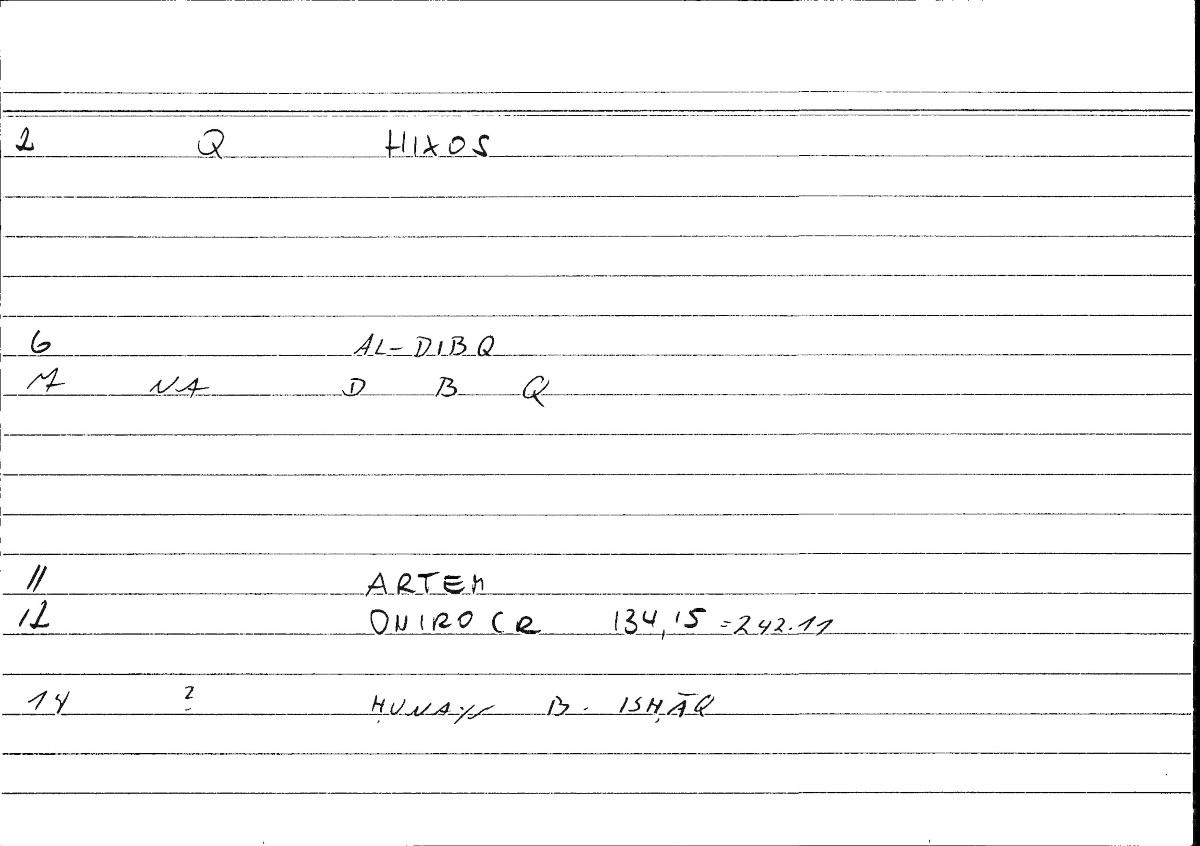 2 Q HIXOS
6 AL-DIBQ
7 NA D B Q
11 ARTEM
12 ONIROCR 134,15 =242.11
14 ? ḤUNAYN B. ISḤĀQ